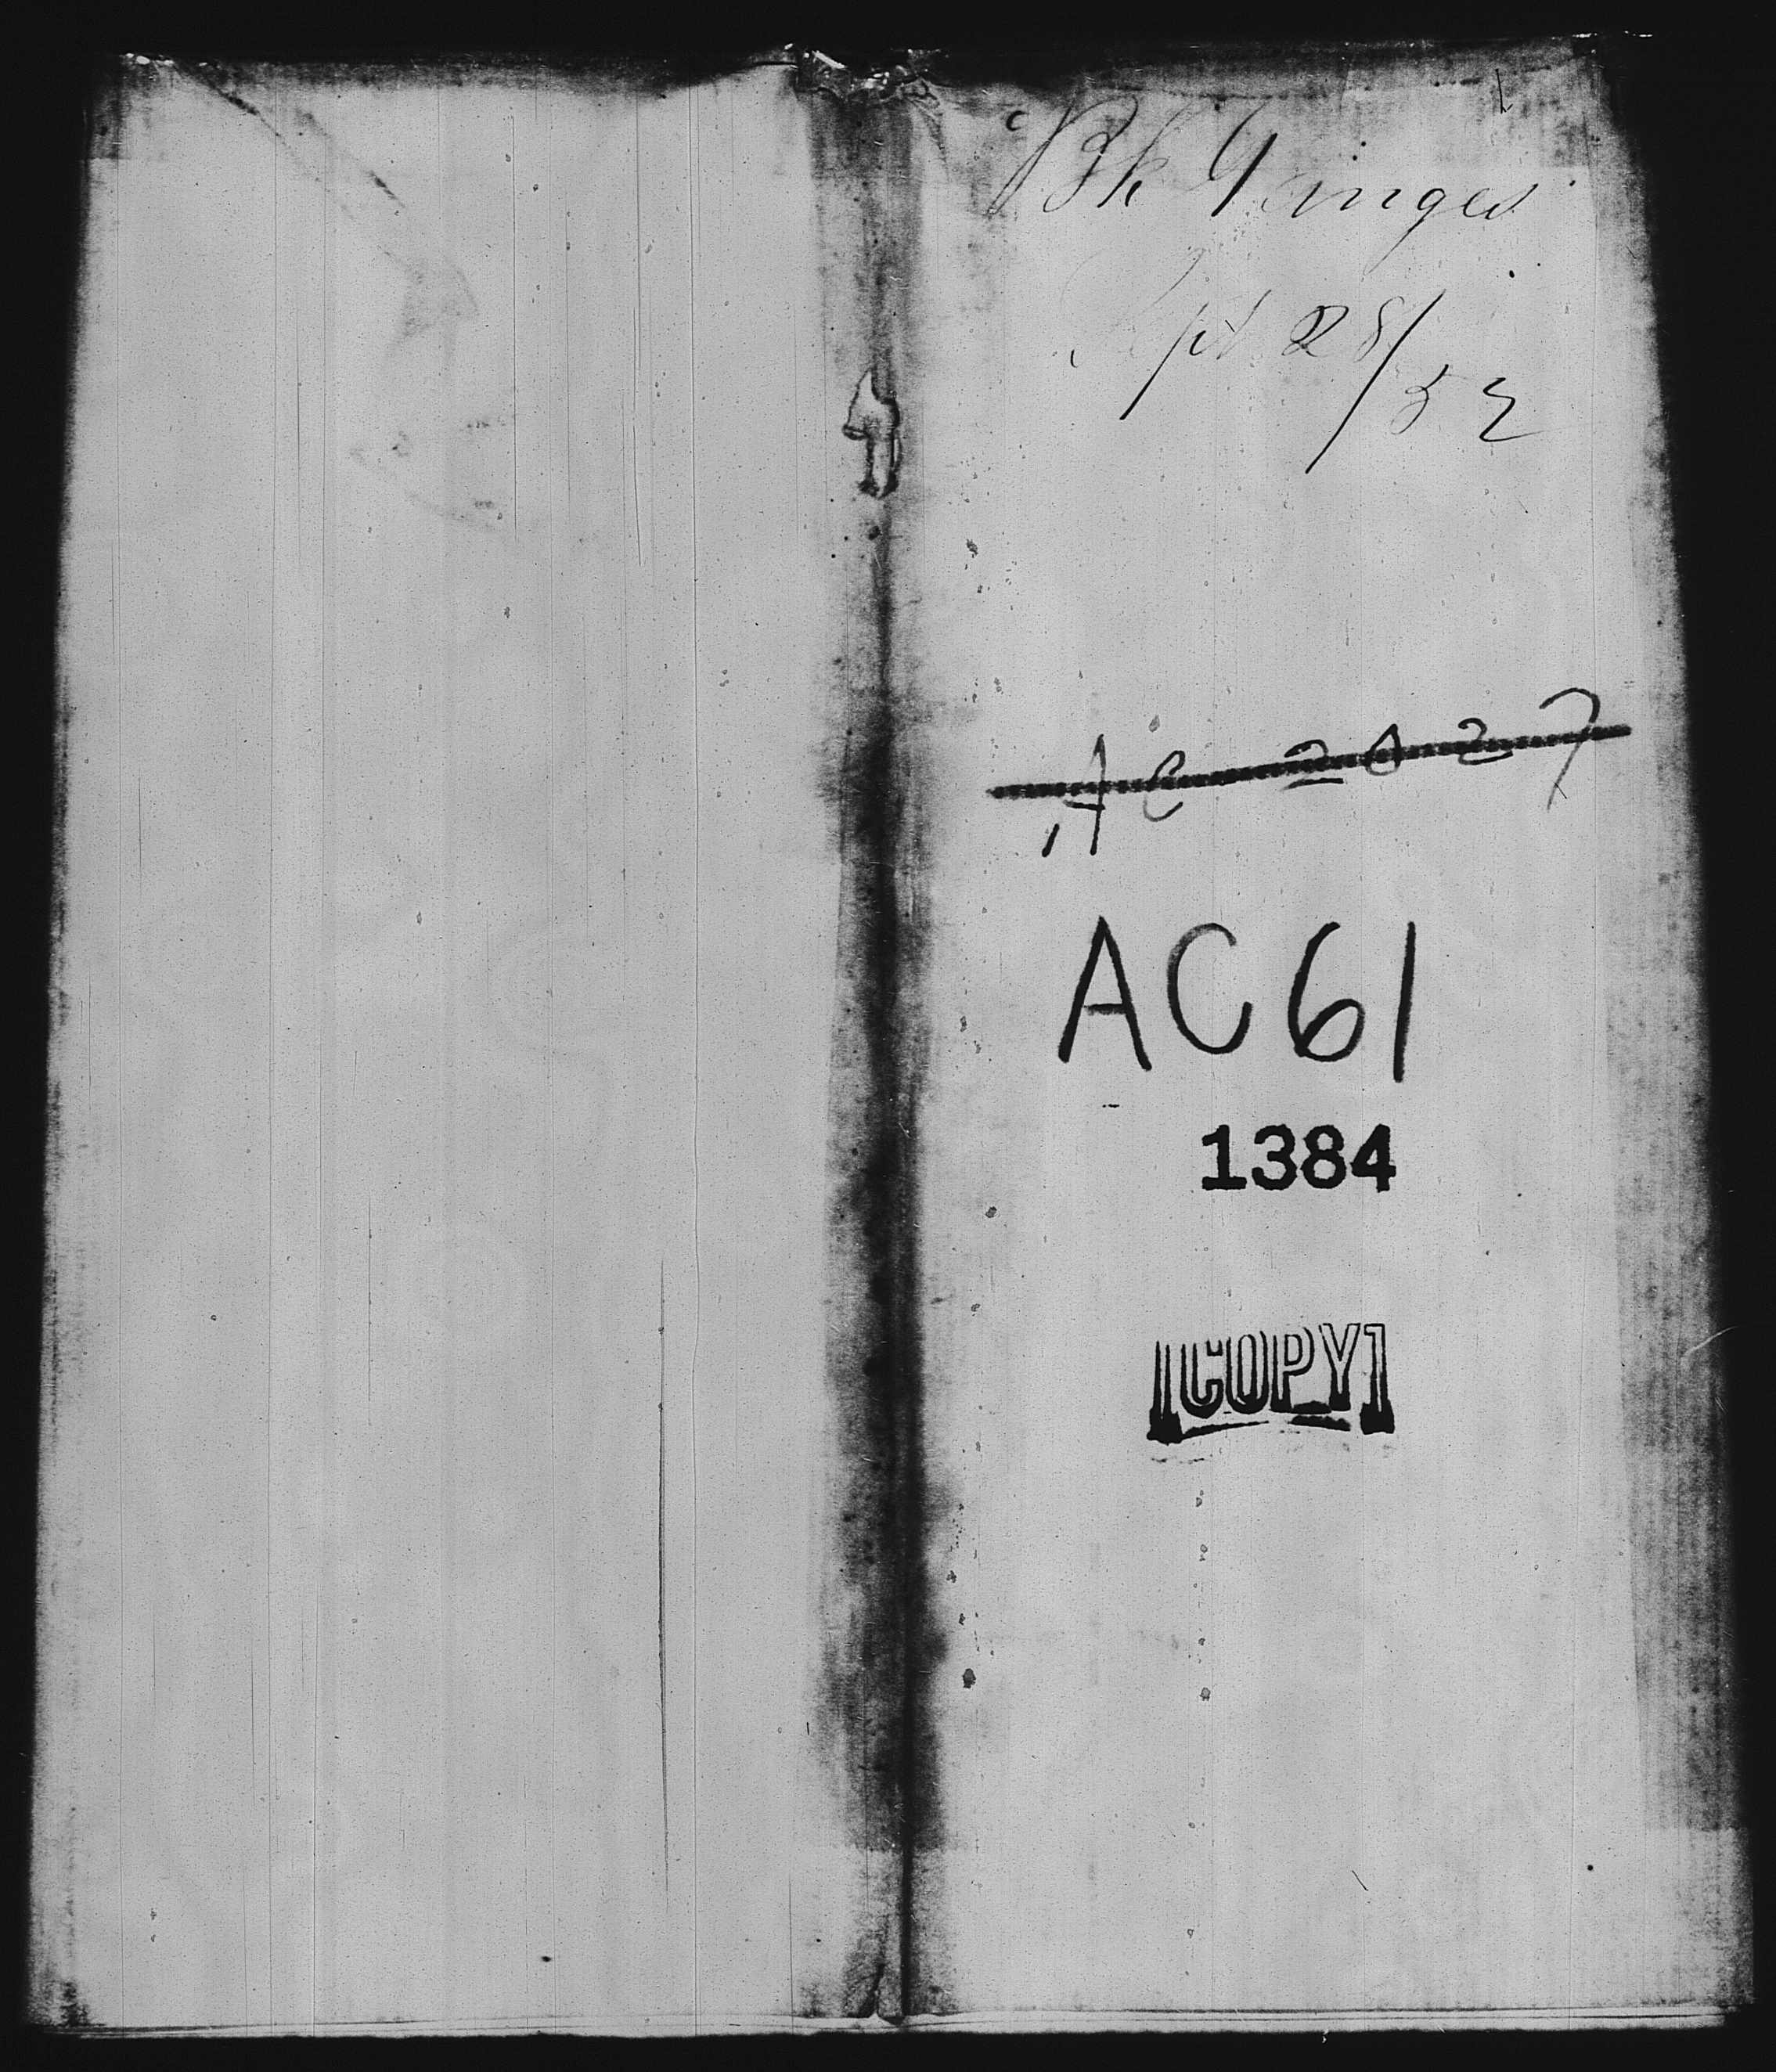 Bk Ganges
Sept 28/52
AC 2027
AC61
1384
COPY1